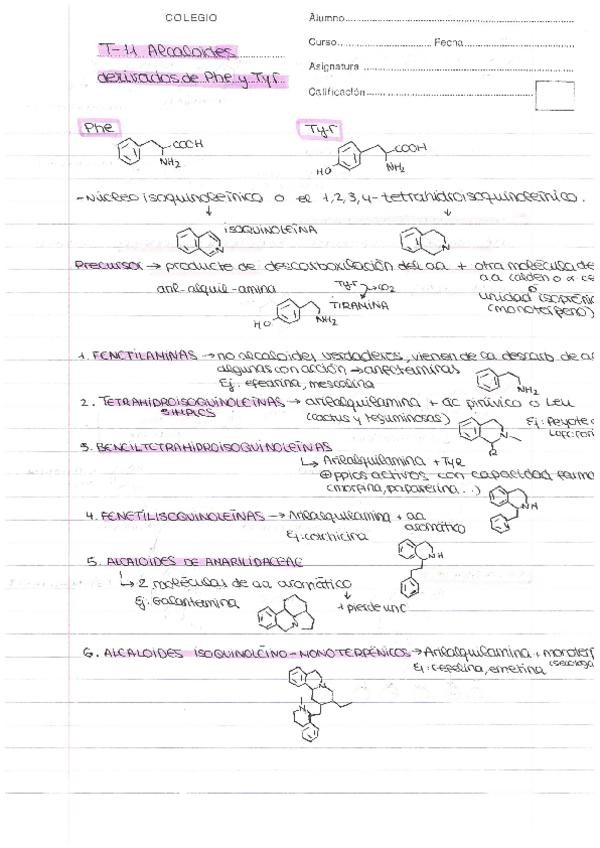 COLEGIO
Alumno
Curso Fecha
T-11 Alcaloides
Asignatura
derivados de Phe y Tyr
Calificación
Phe Tyr
COOH COOH
NH2 HO NH2
-Núcleo isoquinoleínico o el 1,2,3,4-tetrahidroisoquinoleínico.
ISOQUINOLEÍNA
N N
Precursor → producto de descarboxilación del aa + otra molécula de
aril-alquil-amina Tyr CO2 aa (aldeh o
TIRAMINA unidad isopréni
HO NH2 (monoterpeno)
1. FENETILAMINAS → no alcaloides verdaderos, vienen de la descarb. de a
algunas con acción → anfetaminas
Ej: efedrina, mescalina NH2
2. TETRAHIDROISOQUINOLEÍNAS → arilalquilamina + ac pirúvico o Leu
SIMPLES (cactus y leguminosas) Ej: Peyote
N
R
3. BENCILTETRAHIDROISOQUINOLEÍNAS
↳ Arilalquilamina + Tyr
⊕ ppios activos con capacidad farma
(morfina, papaverina...)
NH
4. FENETILISOQUINOLEÍNAS → Arilalquilamina + aa
aromático
Ej: colchicina
NH
5. ALCALOIDES DE AMARILIDACEAE
↳ 2 moléculas de aa aromático
Ej: Galantamina + pierde un C
N
6. ALCALOIDES ISOQUINOLEINO-MONOTERPÉNICOS → Arilalquilamina + monoterp
Ej: cefelina, emetina
N